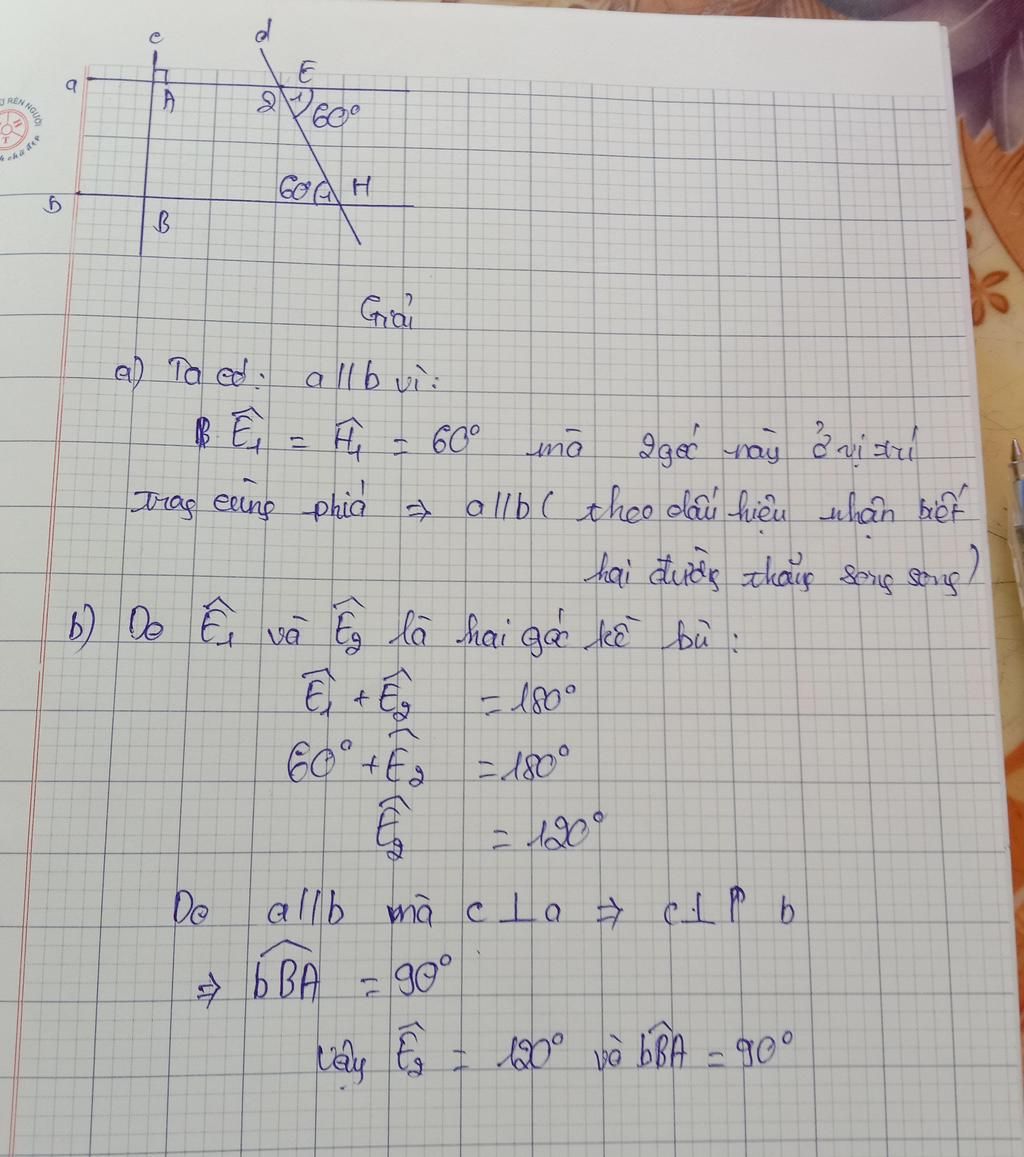 c
d
a
A
E
2
1
60°
b
B
60°
1
H
Ử RÈN NGƯỜI
Giải
a) Ta có: a//b vì:
Ê₁ = Ĥ₁ = 60° mà 2 góc này ở vị trí
trog cùng phía ⇒ a//b ( theo dấu hiệu nhận biết
hai đường thẳng song song)
b) Do Ê₁ và Ê₂ là hai góc kề bù:
Ê₁ + Ê₂ = 180°
60° + Ê₂ = 180°
Ê₂ = 120°
Do a//b mà c⊥a ⇒ c⊥ b
⇒ b̂BA = 90°
Vậy Ê₂ = 120° và bB̂A = 90°